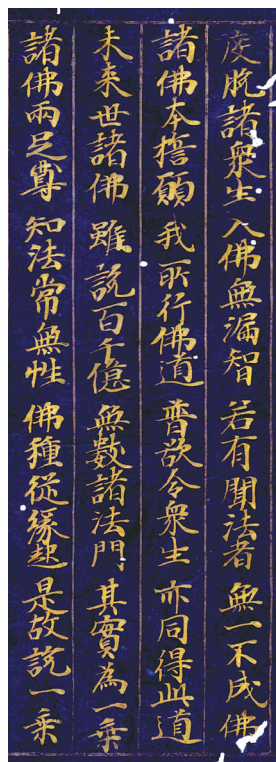 度脫諸衆生 入佛無漏智 若有聞法者 無一不成佛
諸佛本誓願 我所行佛道 普欲令衆生 亦同得此道
未來世諸佛 雖説百千億 無數諸法門 其實為一乗
諸佛兩足尊 知法常無性 佛種従縁起 是故説一乗